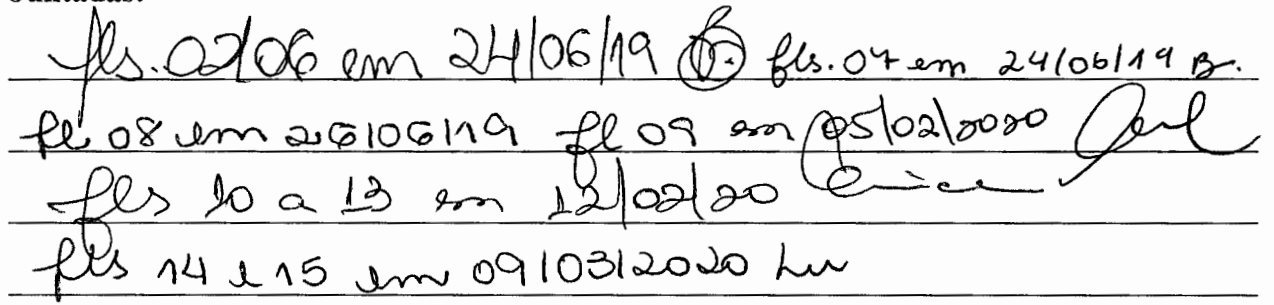 fls. 02/06 em 24/06/19 B. fls. 07 em 24/06/19 B.
fl 08 em 26/06/19 fl 09 em 05/02/2020
fls 10 a 13 em 12/02/20
fls 14 e 15 em 09/03/2020 Lu